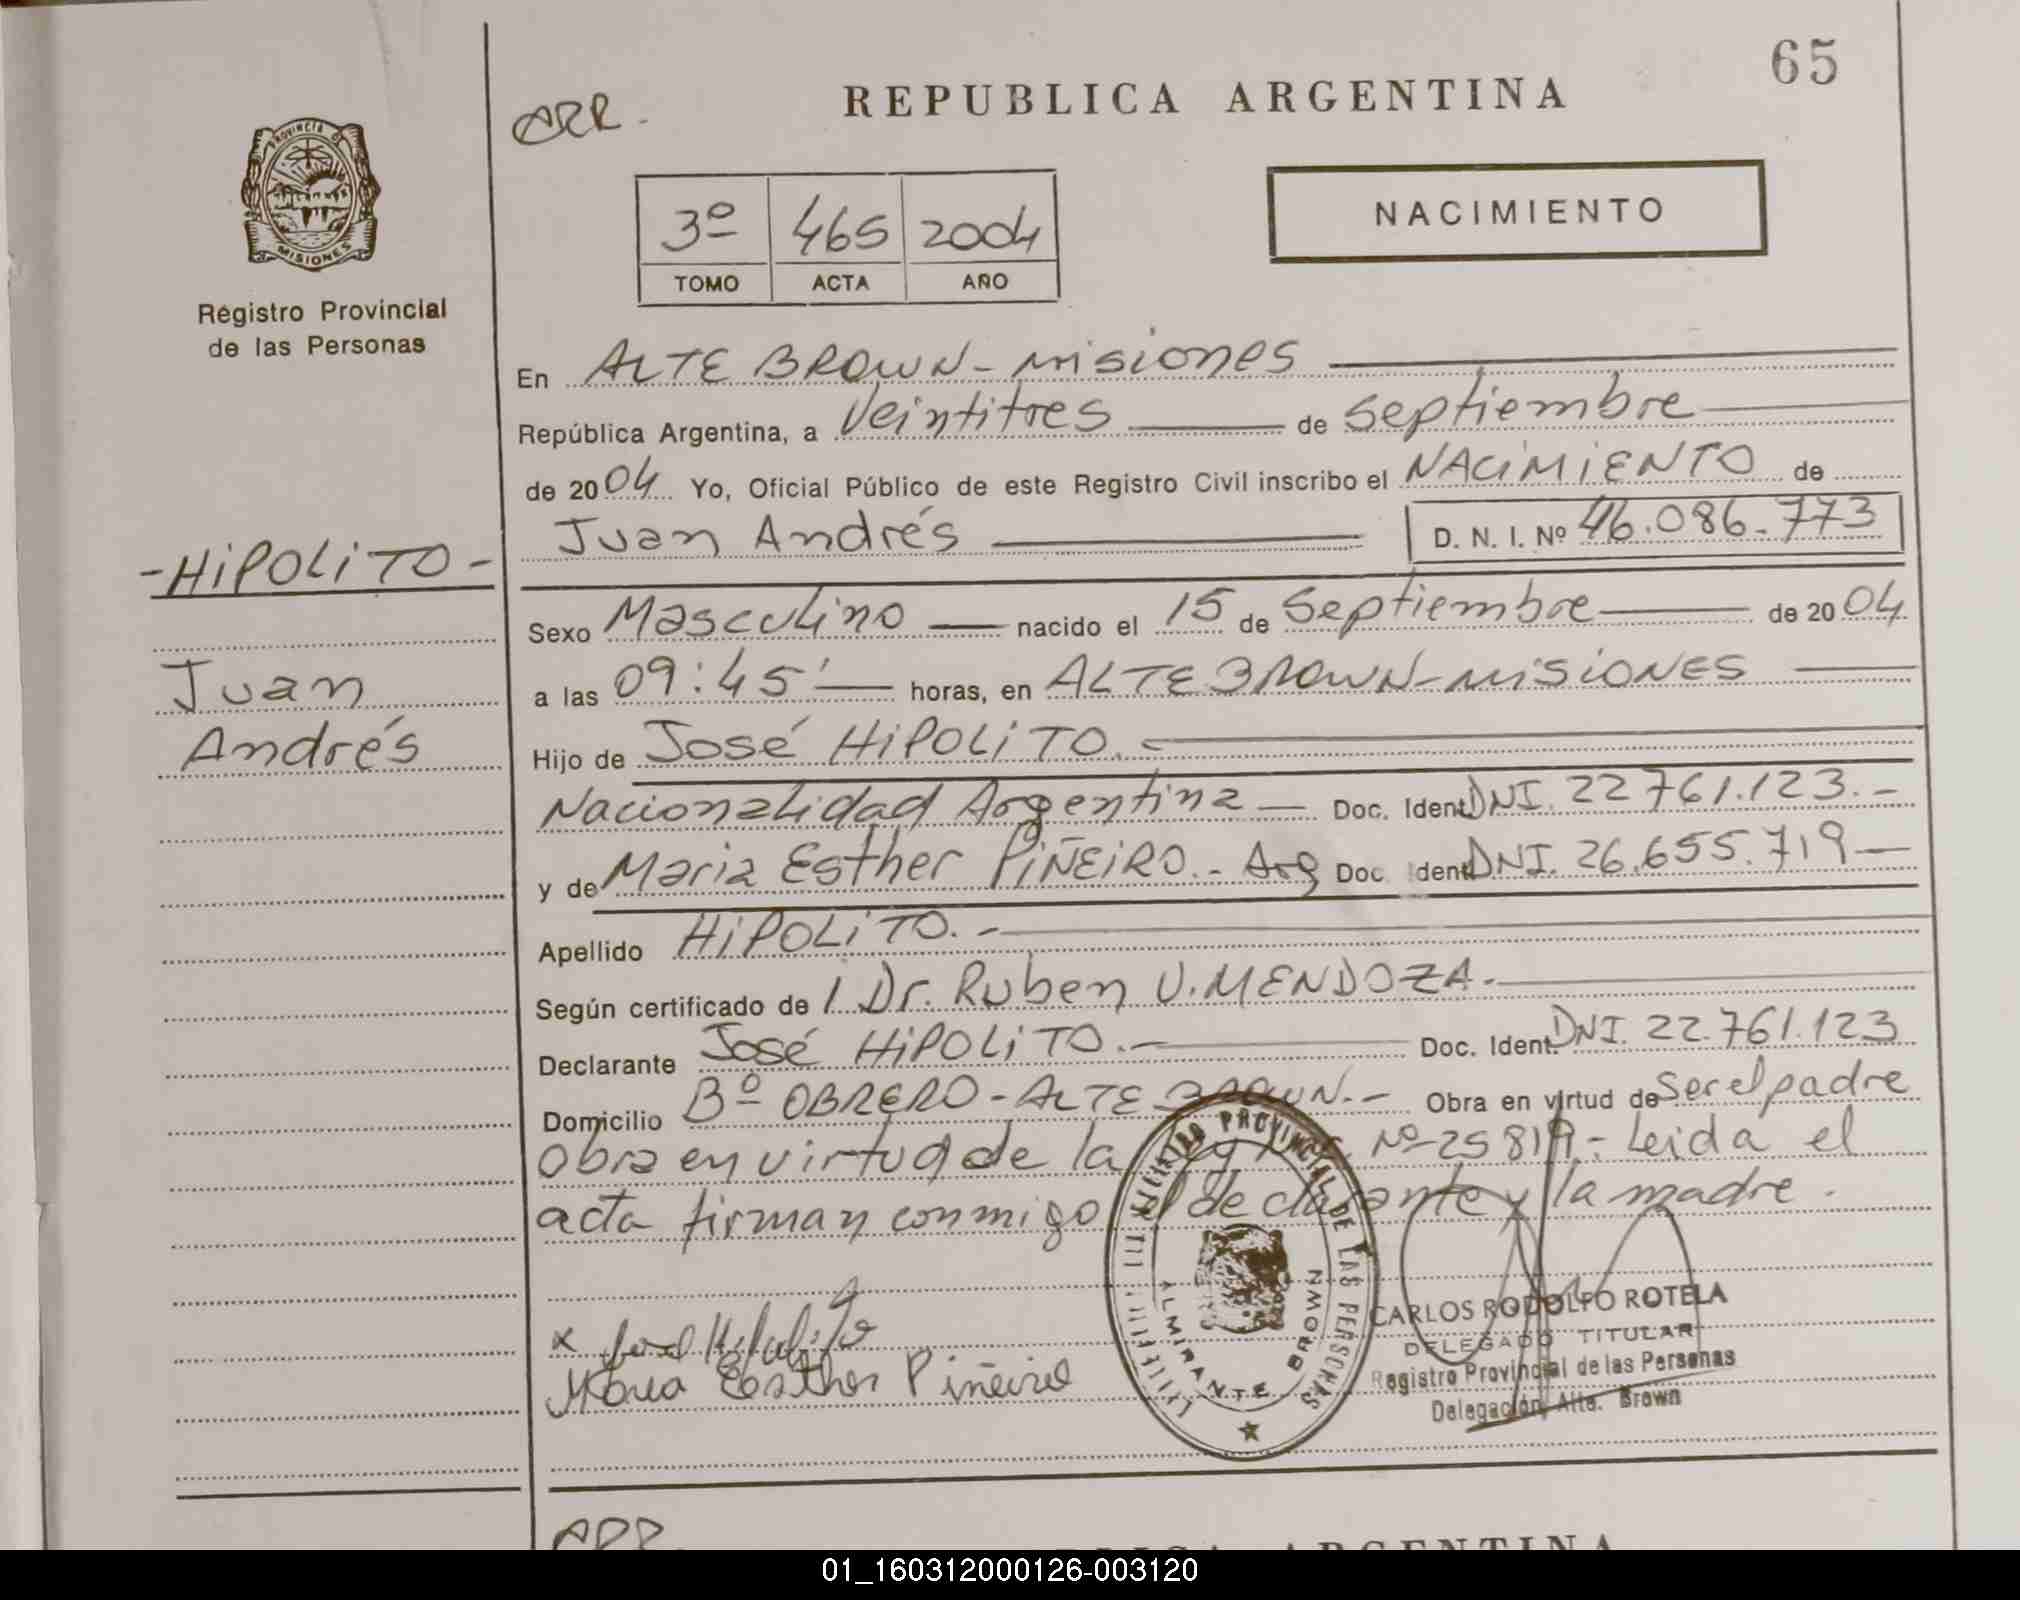 65
REPUBLICA ARGENTINA
NACIMIENTO
PROVINCIA DE
MISIONES
Registro Provincial
de las Personas
3º 465 2004
TOMO ACTA AÑO
En ALTE BROWN - Misiones
República Argentina, a Veintitres de Septiembre
de 2004 Yo, Oficial Público de este Registro Civil inscribo el NACIMIENTO de
Juan Andrés D. N. I. Nº 46.086.773
- HIPOLITO -
Juan
Andrés
Sexo Masculino nacido el 15 de Septiembre de 2004
a las 09:45' horas, en ALTE BROWN - MISIONES
Hijo de José HIPOLITO.-
Nacionalidad Argentina Doc. Ident. DNI. 22.761.123.-
y de Maria Esther PIÑEIRO.- Arg Doc Ident. DNI. 26.655.719
Apellido HIPOLITO.-
Según certificado de / Dr. Ruben U. MENDOZA.-
Declarante José HIPOLITO.- Doc. Ident. DNI. 22.761.123
Domicilio Bº OBRERO - ALTE BROWN.- Obra en virtud de Ser el padre
Obra en virtud de la Nº 25819.- Leida el
acta firman conmigo el declarante y la madre.
x José Hipolito
Maria Esther Piñeiro
REGISTRO PROVINCIAL DE LAS PERSONAS
ALMIRANTE BROWN
CARLOS RODOLFO ROTELA
DELEGADO TITULAR
Registro Provincial de las Personas
Delegación Alte. Brown
REPUBLICA ARGENTINA
01_160312000126-003120